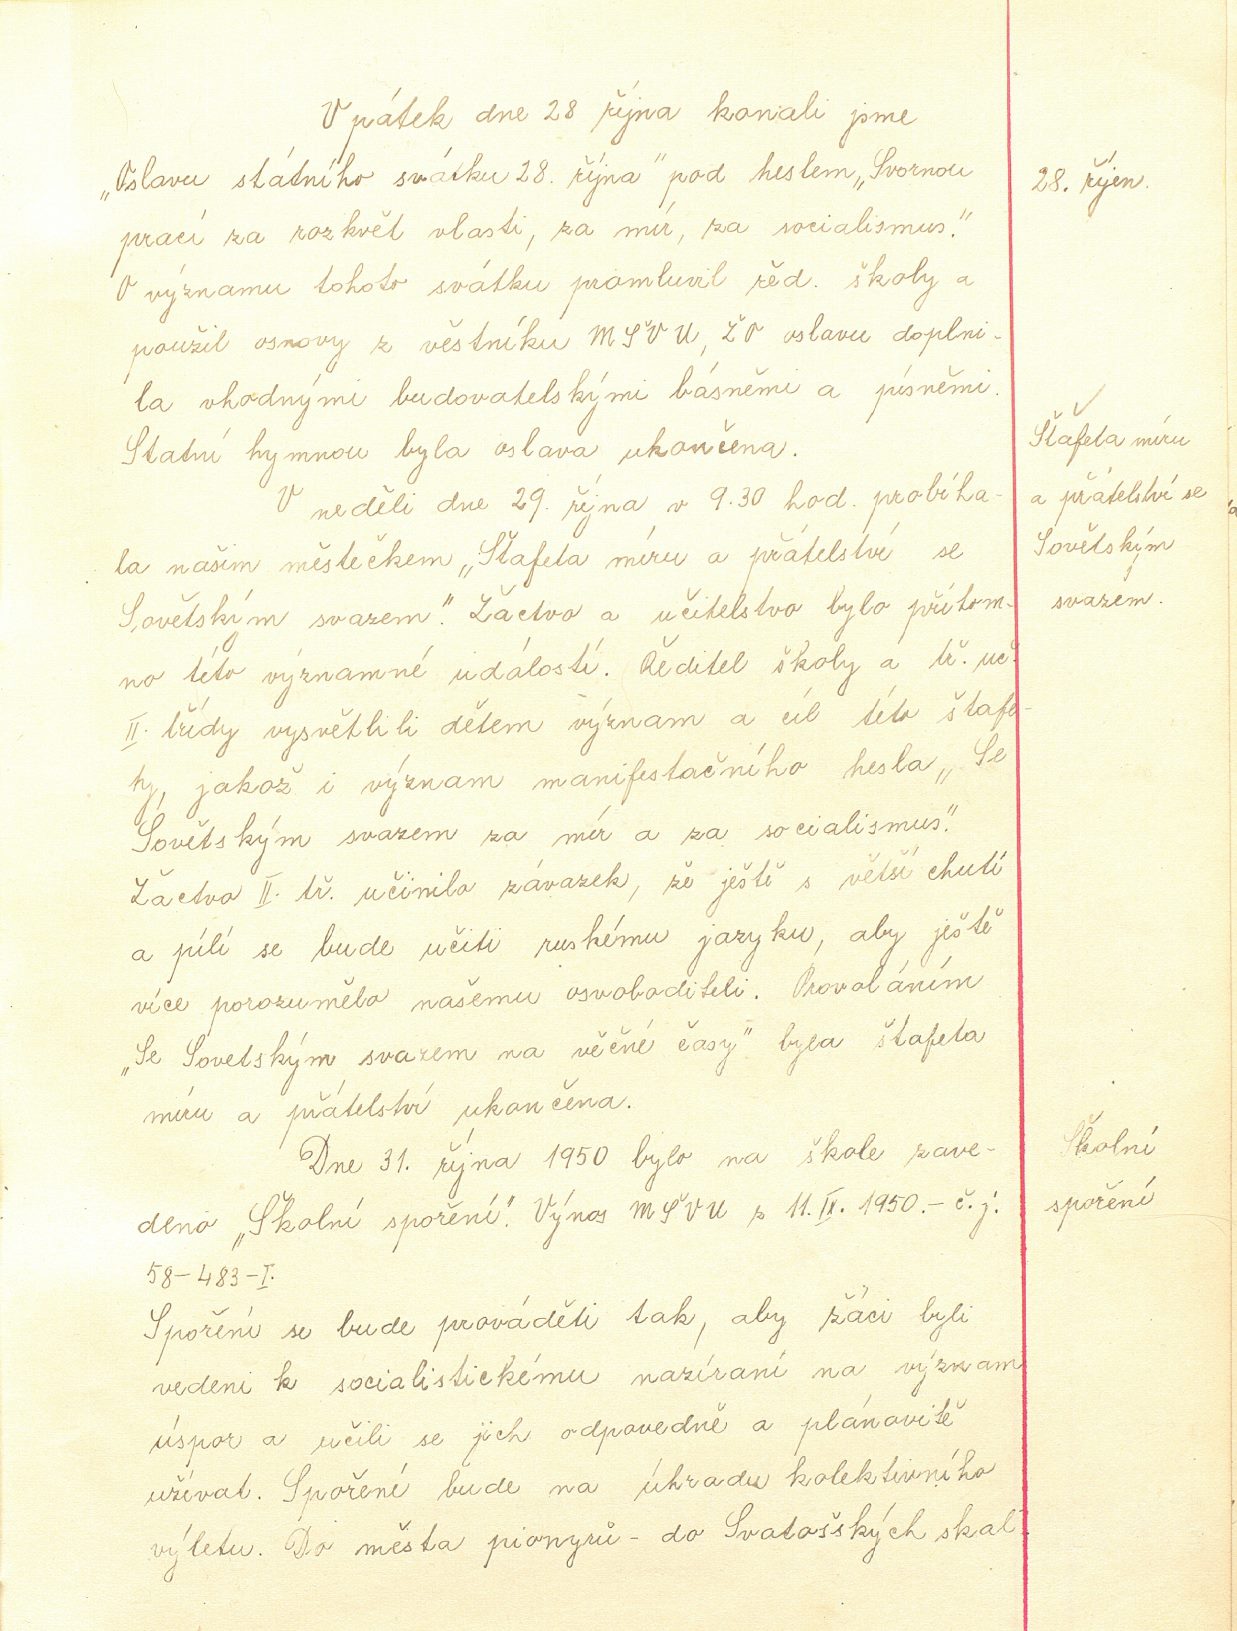 V pátek dne 28 října konali jsme
„Oslavu státního svátku 28. října" pod heslem „Svornou
28. říjen.
prací za rozkvět vlasti, za mír, za socialismus".
O významu tohoto svátku promluvil řěd. školy a
použil osnovy z věstníku MŠVU, ŽO oslavu doplni-
la vhodnými budovatelskými básněmi a písněmi.
Statní hymnou byla oslava ukončena.
Štafeta míru
V neděli dne 29. října v 9.30 hod. probíha-
a přátelství se
la našim městečkem „Štafeta míru a přátelství se
Sovětským
Sovětským svazem". Žactvo a učitelstvo bylo přítom-
svazem.
no této významné události. Ředitel školy a tř. uč.
II. třídy vysvětlili dětem význam a cíl této štafe-
ty, jakož i význam manifestačního hesla „Se
Sovětským svazem za mír a za socialismus".
Žactvo II. tř. učinilo závazek, že ještě s větší chutí
a pílí se bude učiti ruskému jazyku, aby ještě
více porozumělo našemu osvoboditeli. Provoláním
„Se Sovetským svazem na věčné časy" byla štafeta
míru a přátelství ukončena.
Dne 31. října 1950 bylo na škole zave-
Školní
deno „Školní spoření". Výnos MŠVU z 11. IX. 1950.- č. j.
spoření
58-483-I.
Spoření se bude prováděti tak, aby žáci byli
vedeni k socialistickému nazíraní na význam
úspor a učili se jich odpovedně a plánovitě
užívat. Spoření bude na úhradu kolektivního
výletu. Do města pionýrů - do Svatošských skal